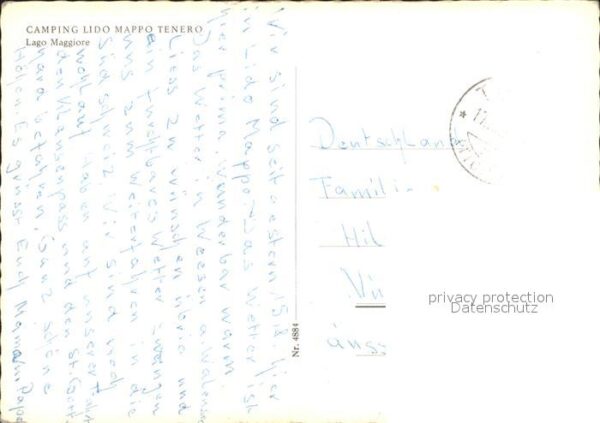 CAMPING LIDO MAPPO TENERO
Lago Maggiore
Wir sind seit gestern 15h hier
in Lido Mappo. Das Wetter ist
hier prima. Wunderbar warm.
Das Wetter in Weesen a.
Liess zu wünschen übrig und
ein furchtbares Wetter
uns zum Weiterfahren in die
Südschweiz. Wir sind noch
wohlauf haben auf unserer Fahrt
den Klausenpass und den St. Gott.
hard gefahren, Ganz schöne
Höhen. Es grüsst Euch Mama und Papa
Nr. 4884
Deutschland
Famili
Hil
privacy protection
Datenschutz